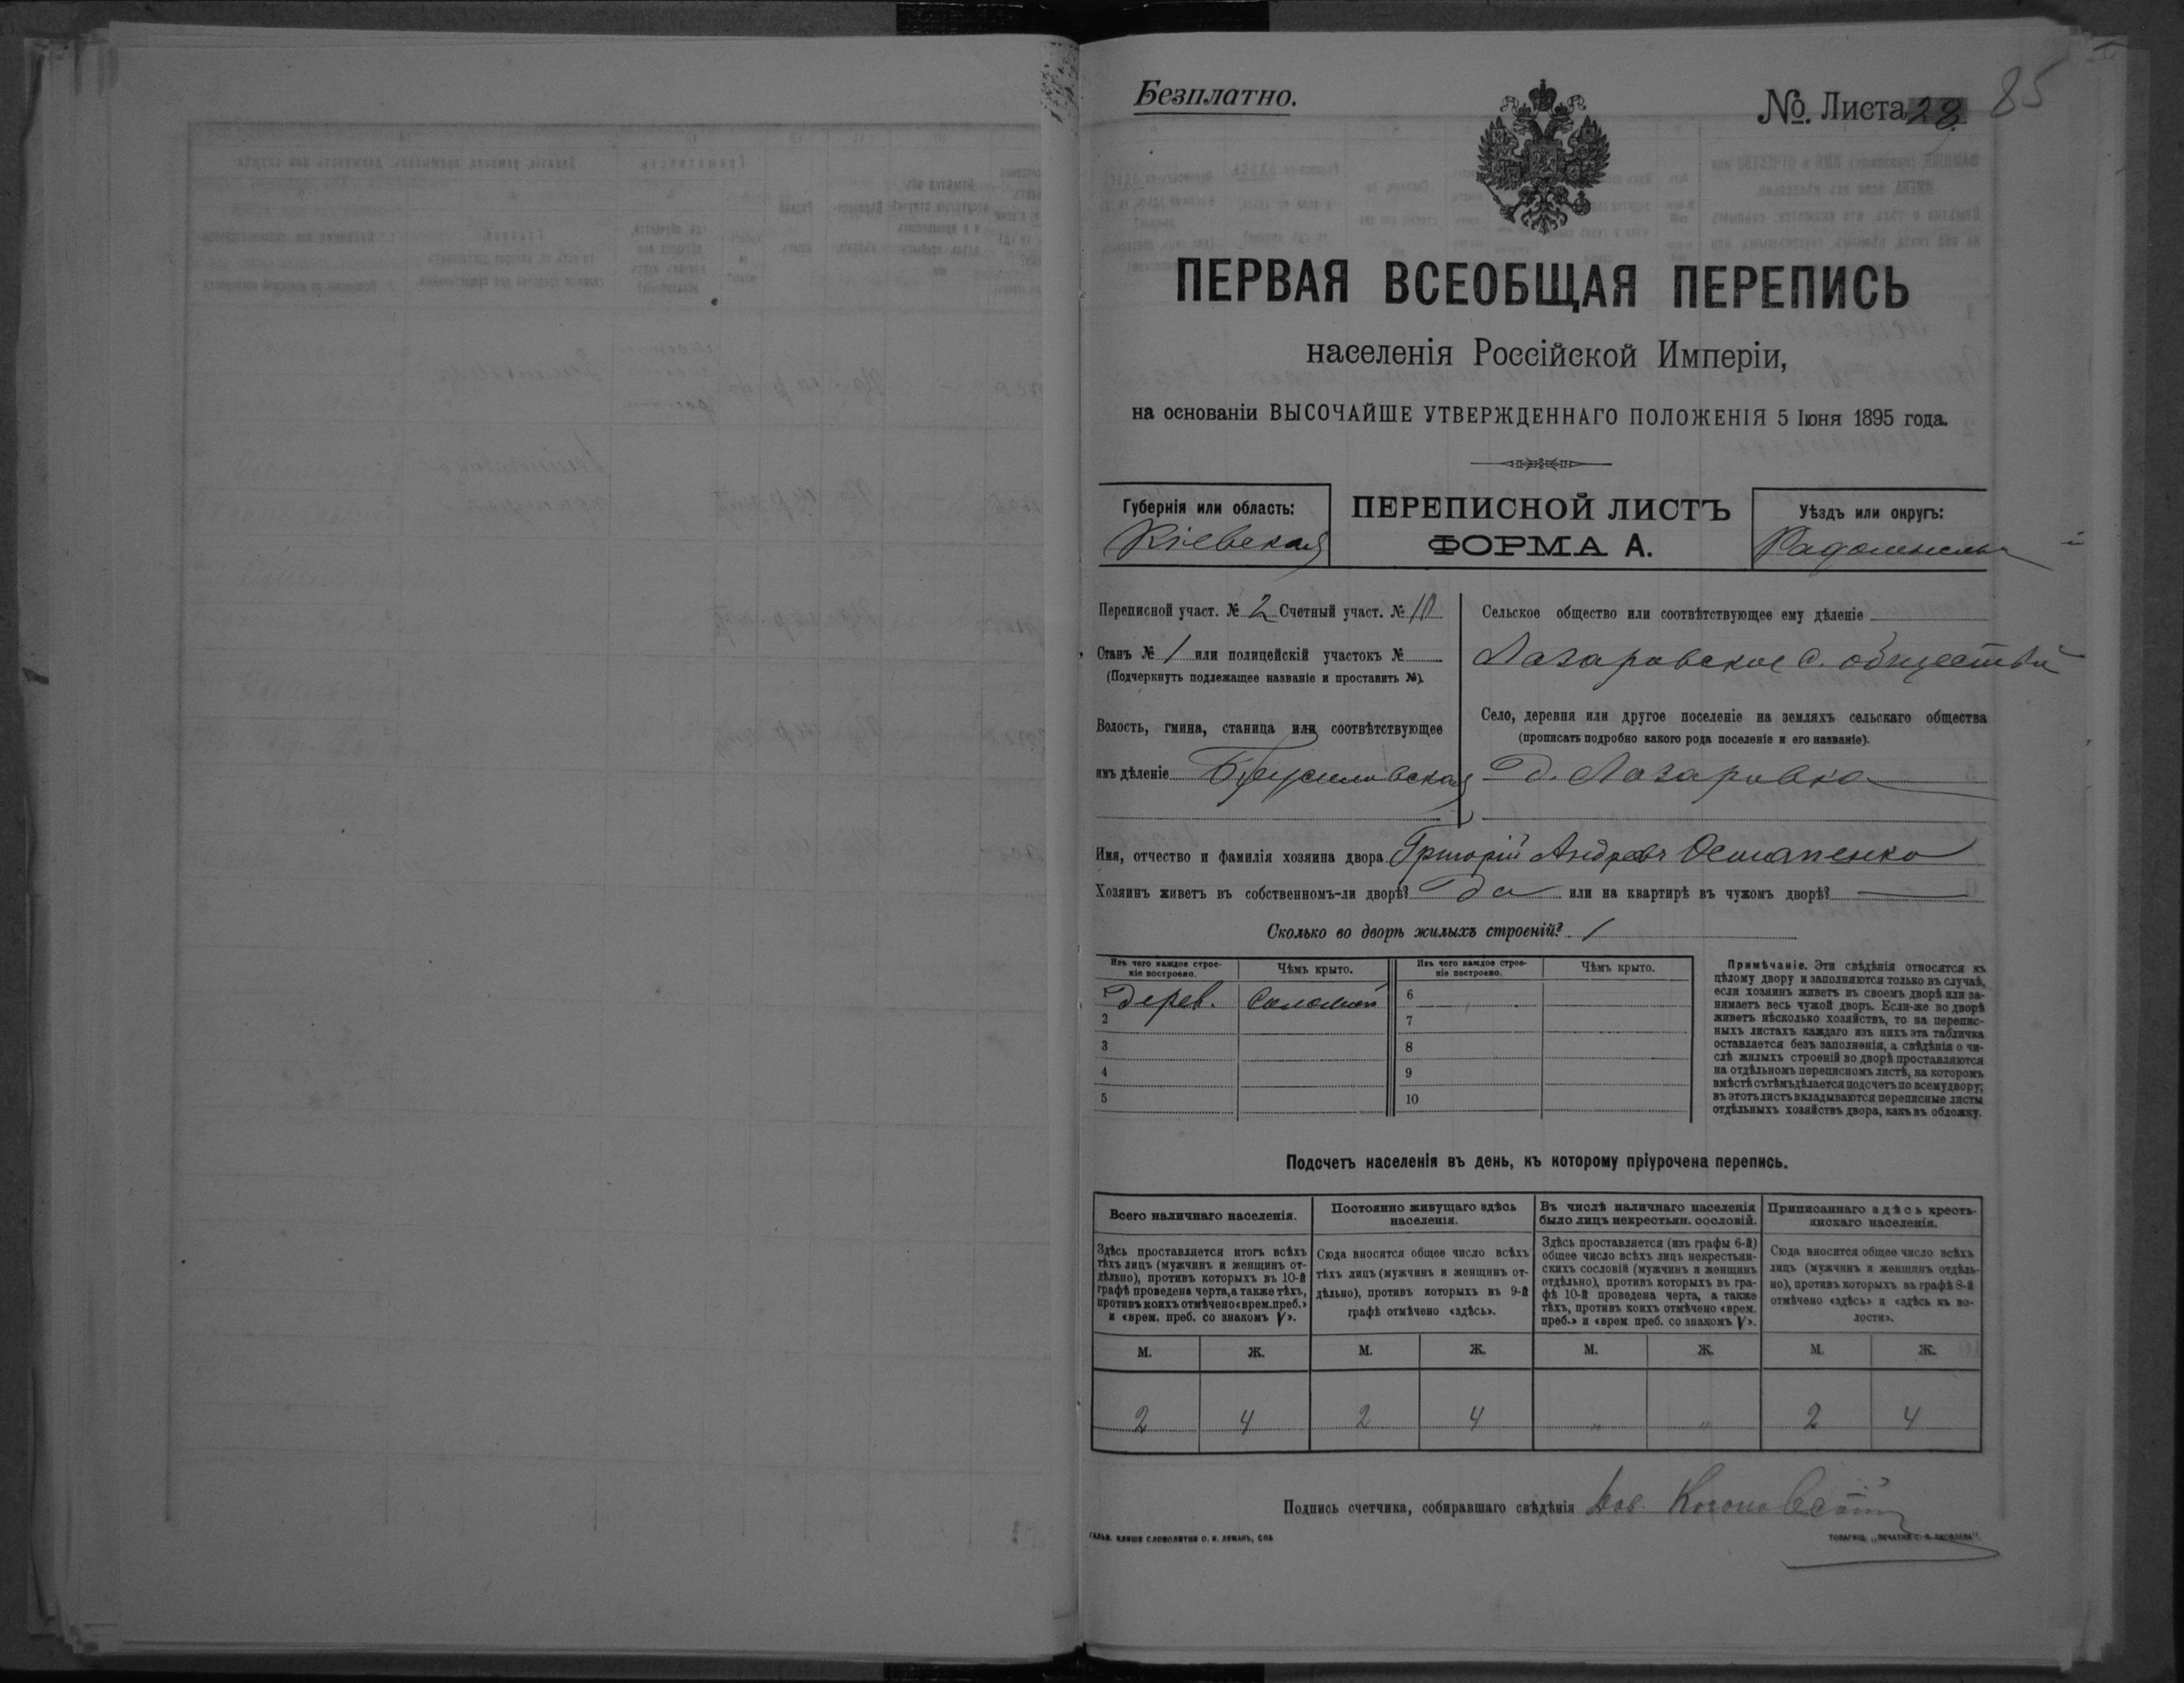 Безплатно.
№. Листа 28
85
ПЕРВАЯ ВСЕОБЩАЯ ПЕРЕПИСЬ
населенія Россійской Имперіи,
на основаніи ВЫСОЧАЙШЕ УТВЕРЖДЕННАГО ПОЛОЖЕНІЯ 5 Іюня 1895 года.
Губернія или область:
Кіевская
ПЕРЕПИСНОЙ ЛИСТЪ
ФОРМА А.
Уѣздъ или округъ:
Радомысльскій
Переписной участ. № 2 Счетный участ. № 10
Станъ № 1 или полицейскій участокъ №
(Подчеркнуть подлежащее названіе и проставить №).
Волость, гмина, станица или соотвѣтствующее
имъ дѣленіе Брусиловская
Сельское общество или соотвѣтствующее ему дѣленіе
Лазаровское с. общество
Село, деревня или другое поселеніе на земляхъ сельскаго общества
(прописать подробно какого рода поселеніе и его названіе).
д. Лазаровка
Имя, отчество и фамилія хозяина двора Григорій Андреевъ Остапенко
Хозяинъ живетъ въ собственномъ-ли дворѣ? Да или на квартирѣ въ чужомъ дворѣ? —
Сколько во дворѣ жилыхъ строеній? 1
Изъ чего каждое строе-
ніе построено.
Чѣмъ крыто.
Изъ чего каждое строе-
ніе построено.
Чѣмъ крыто.
1 дерев. Соломой 6
2 7
3 8
4 9
5 10
Примѣчаніе. Эти свѣдѣнія относятся къ
цѣлому двору и заполняются только въ случаѣ,
если хозяинъ живетъ въ своемъ дворѣ или за-
нимаетъ весь чужой дворъ. Если-же во дворѣ
живетъ нѣсколько хозяйствъ, то на перепис-
ныхъ листахъ каждаго изъ нихъ эта табличка
оставляется безъ заполненія, а свѣдѣнія о чи-
слѣ жилыхъ строеній во дворѣ проставляются
на отдѣльномъ переписномъ листѣ, на которомъ
вмѣстѣ съ тѣмъ дѣлается подсчетъ по всему двору;
въ этотъ листъ вкладываются переписные листы
отдѣльныхъ хозяйствъ двора, какъ въ обложку.
Подсчетъ населенія въ день, къ которому пріурочена перепись.
Всего наличнаго населенія.
Здѣсь проставляется итогъ всѣхъ
тѣхъ лицъ (мужчинъ и женщинъ от-
дѣльно), противъ которыхъ въ 10-й
графѣ проведена черта, а также тѣхъ,
противъ коихъ отмѣчено «врем. преб.»
и «врем. преб. со знакомъ V».
Постоянно живущаго здѣсь
населенія.
Сюда вносится общее число всѣхъ
тѣхъ лицъ (мужчинъ и женщинъ от-
дѣльно), противъ которыхъ въ 9-й
графѣ отмѣчено «здѣсь».
Въ числѣ наличнаго населенія
было лицъ некрестьян. сословій.
Здѣсь проставляется (изъ графы 6-й)
общее число всѣхъ лицъ некрестьян-
скихъ сословій (мужчинъ и женщинъ
отдѣльно), противъ которыхъ въ гра-
фѣ 10-й проведена черта, а также
тѣхъ, противъ коихъ отмѣчено «врем.
преб.» и «врем преб. со знакомъ V».
Приписаннаго здѣсь кресть-
янскаго населенія.
Сюда вносится общее число всѣхъ
лицъ (мужчинъ и женщинъ отдѣль-
но), противъ которыхъ въ графѣ 8-й
отмѣчено «здѣсь» и «здѣсь къ во-
лости».
М. Ж. М. Ж. М. Ж. М. Ж.
2 4 2 4 " " 2 4
Подпись счетчика, собиравшаго свѣдѣнія
ГАЛЬВ. КЛИШЕ СЛОВОЛИТНИ О. И. ЛЕМАНЪ, СПБ
ТОВАРИЩ. „ПЕЧАТНЯ С. П. ЯКОВЛЕВА".